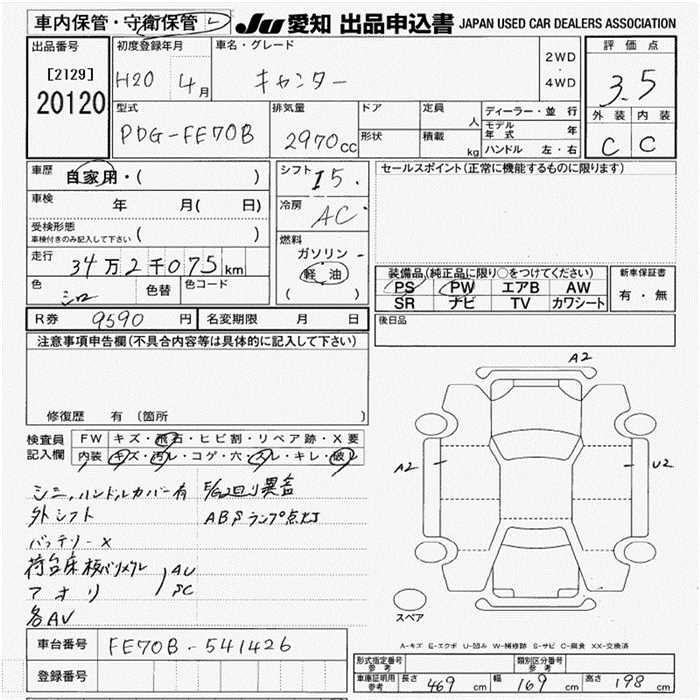 車内保管・守衛保管 レ JU 愛知 出品申込書 JAPAN USED CAR DEALERS ASSOCIATION
出品番号 初度登録年月 車名・グレード 2WD・4WD 評価点
[2129] H20 4月 キャンター 3.5
20120 型式 排気量 ドア 定員 人 ディーラー・並行 外装 内装
PDG-FE70B 2970cc 形状 積載 kg モデル年式 年 C C
ハンドル 左・右
車歴 自家用・( ) シフト I5. セールスポイント(正常に機能するものに限ります)
車検 年 月( 日) 冷房 AC
受検形態 車検付きのみ記入して下さい ( ) 燃料 ガソリン
走行 34万2千075km 軽油 ( )
装備品(純正品に限り○をつけてください) 新車保証書
色 シロ 色替 色コード PS PW エアB AW 有・無
SR ナビ TV カワシート
R券 9590円 名変期限 月 日 後日品
注意事項申告欄(不具合内容等は具体的に記入して下さい)
修復歴 有 〔箇所 〕
A2
検査員記入欄 FW キズ・飛石・ヒビ割・リペア跡・X要
内装 キズ・汚レ・コゲ・穴・スレ・キレ・破レ
A2 U2
シミ,ハンドルカバー有 E/G2回り異音
外シフト ABSランプ点灯
バッテリーX
荷台床板バリメクレ AU
アオリ SC
各AU
スペア
車台番号 FE70B-541426
A-キズ E-エクボ U-凹み W-補修跡 S-サビ C-腐食 XX-交換済
登録番号
形式指定番号 参考 類別区分番号 参考
車庫証明用 参考 長さ 469cm 幅 169cm 高さ 198cm